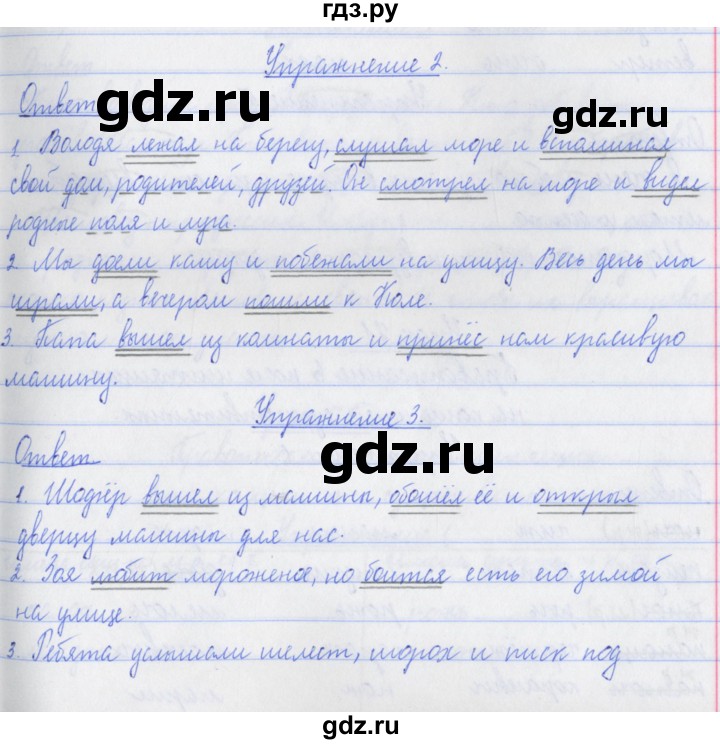 гдз.ру
Упражнение 2.
Ответ
gdz.ru
gdz.ru
1. Володя лежал на берегу, слушал море и вспоминал
свой дом, родителей, друзей. Он смотрел на море и видел
родные поля и луга.
2. Мы доели кашу и побежали на улицу. Весь день мы
играли, а вечером пошли к Коле.
3. Папа вышел из комнаты и принёс нам красивую
машину.
Упражнение 3.
Ответ
gdz.ru
1. Шофёр вышел из машины, обошёл её и открыл
дверцу машины для нас.
2. Зоя любит мороженое, но боится есть его зимой
на улице.
3. Ребята услышали шелест, шорох и писк под
gdz.ru